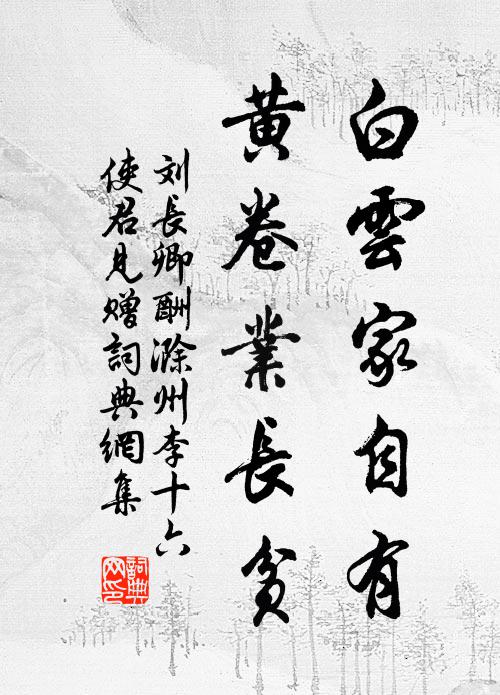 白雲家自有
黄卷業長貧
刘長卿酬滁州李十六
使君見赠詞典網集
詞典
网印